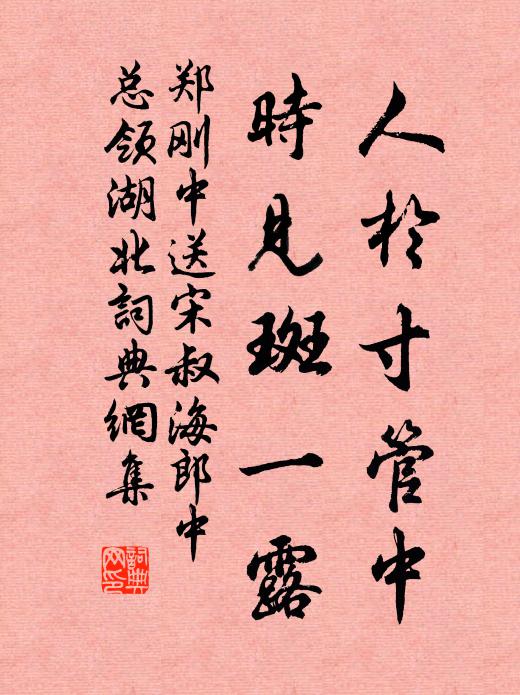 人於寸管中
時見斑一露
郑刚中送宋叔海郎中
总领湖北詞典網集
詞典
网印